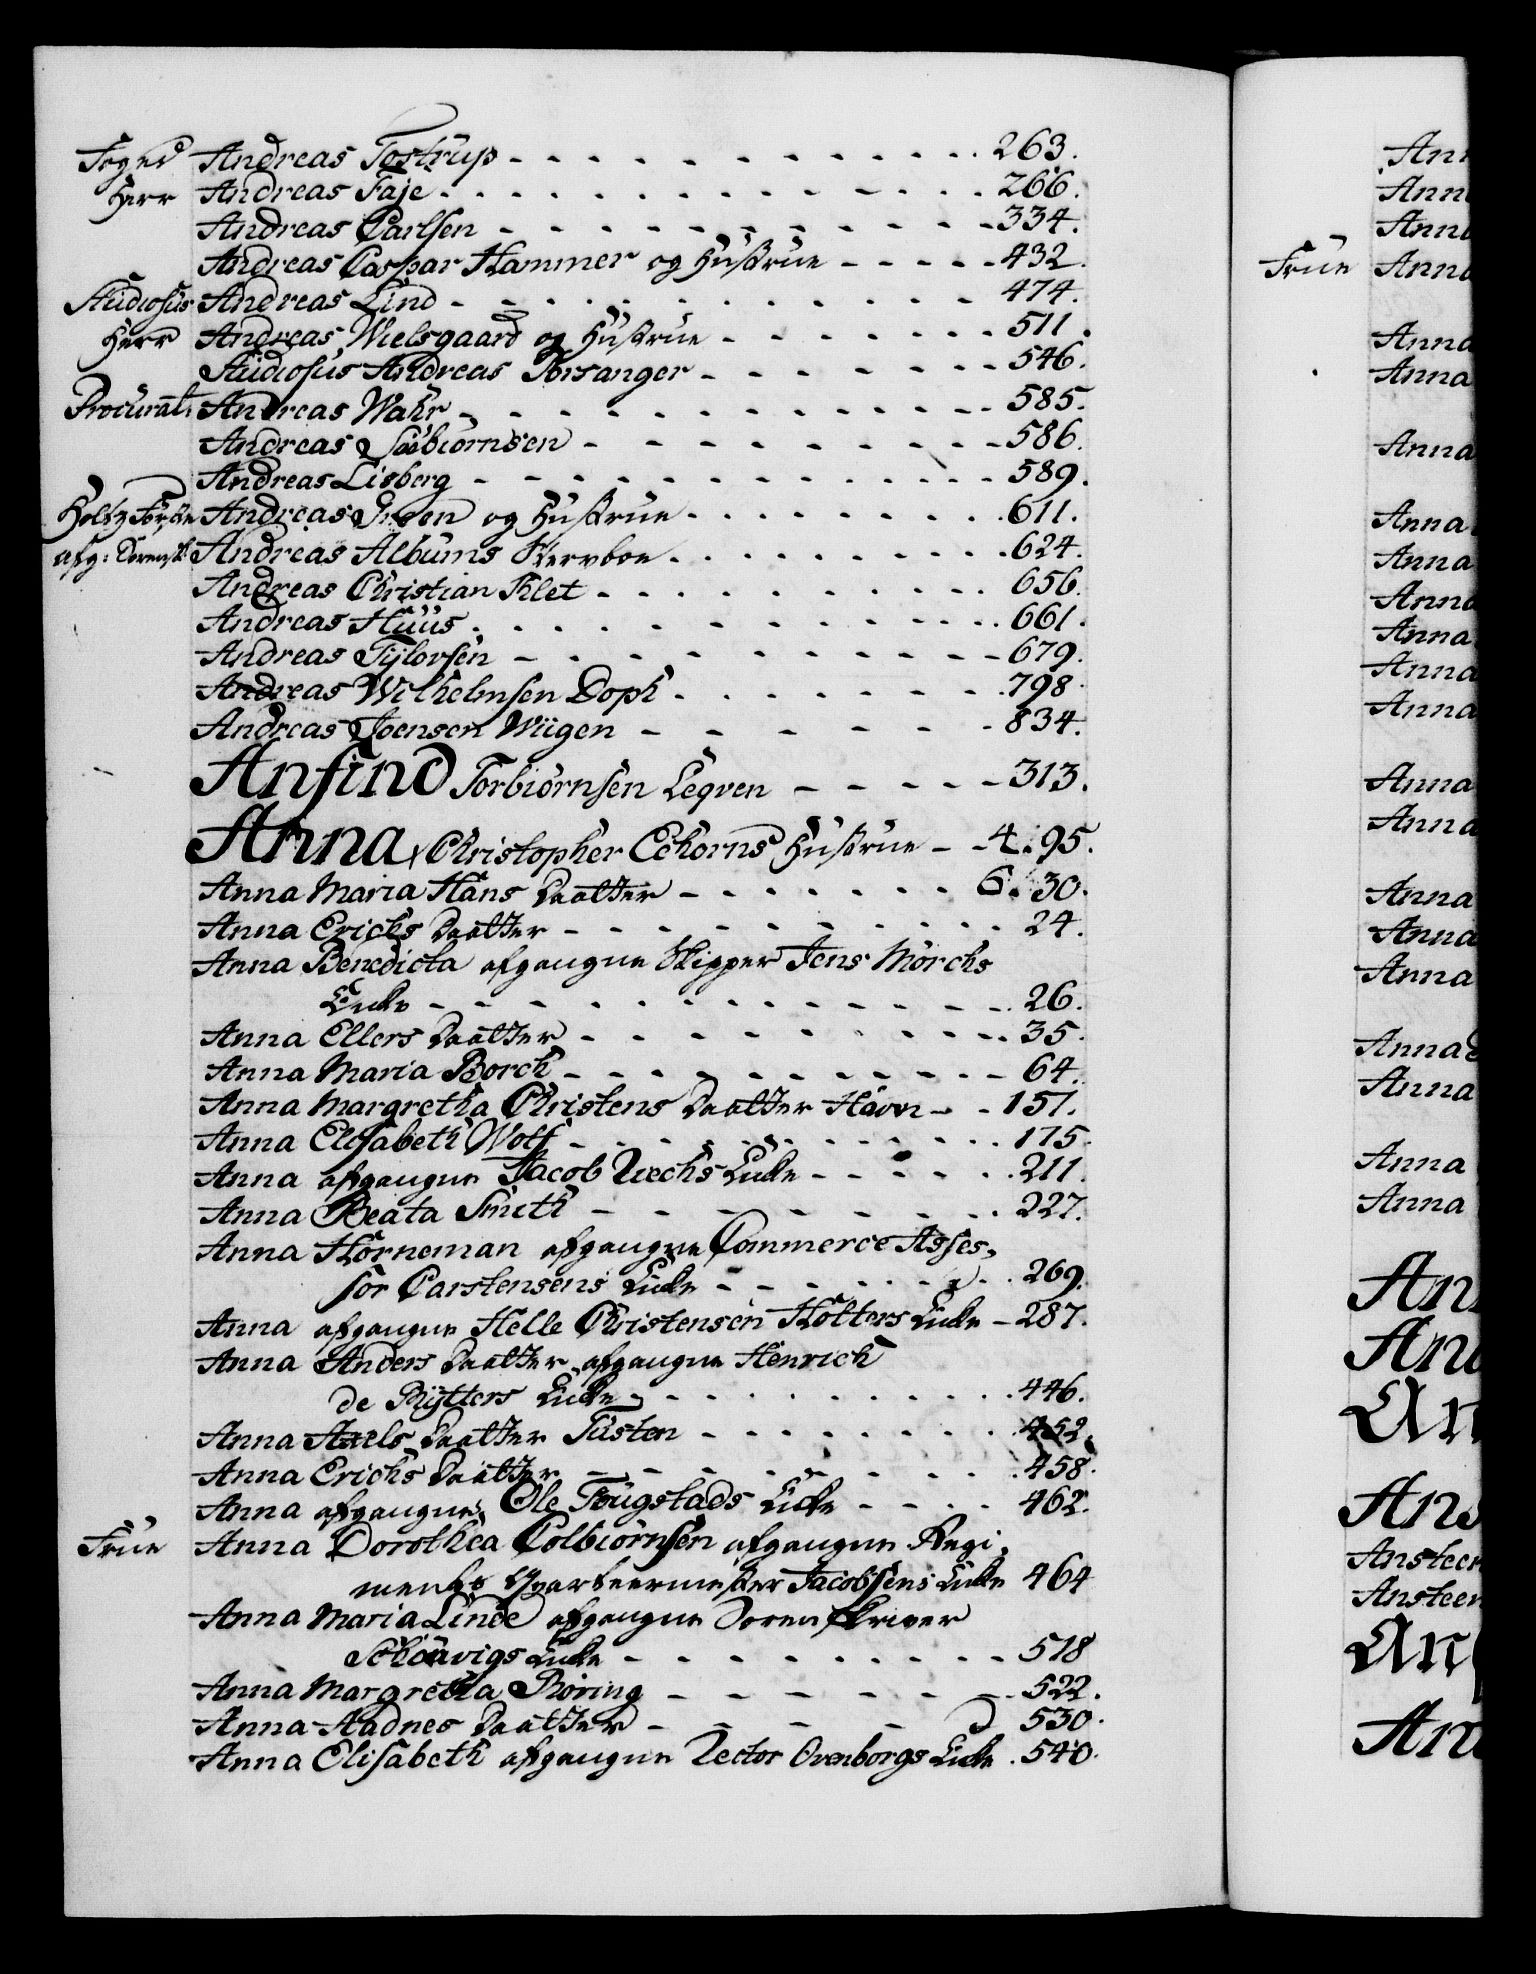 Foged Andreas Tostrup - - - 263.
Herr Andreas Faje - - - 266.
Andreas Carlsen - - - 334.
Andreas Caspar Hammer og Hustrue - - - 432.
Studiosus Andreas Lind - - - 474.
Herr Andreas Nielsgaard og Hustrue - - - 511.
Studiosus Andreas Porsanger - - - 546.
Procurat: Andreas Wahr - - - 585.
Andreas Siøbiørnsen - - - 586.
Andreas Lisberg - - - 589.
Andreas og Hustrue - - - 611.
afg: Andreas Albums - - - 624.
Andreas Christian Klet - - - 656.
Andreas Huus - - - 661.
Andreas - - - 679.
Andreas Wilhelmsen Doph - - - 798.
Andreas Joensen Wiigen - - - 834.
Anfind Torbiørnsen Leqven - - - 313.
Anna, Christopher Eehorns Hustrue - - 4. 95.
Anna Maria Hans Daatter - - - 6. 30.
Anna Erichs Daatter - - - 24.
Anna Benedicta afgangne Skipper Jens Mørchs
Encke - - - 26.
Anna Ellers Daatter - - - 35.
Anna Maria Borch - - - 64.
Anna Margretha Christens Daatter Havn - - 151.
Anna Elisabeth Wolf - - - 175.
Anna afgangne Jacob Uechs Encke - - - 211.
Anna Beata Smith - - - 227.
Anna Horneman afgangne Commerce Asses-
sor Carstensens Encke - - - 269.
Anna afgangne Helle Christensen Holters Encke - 287.
Anna Anders Daatter afgangne Henrich
de Rytters Encke - - - 446.
Anna Axels Daatter Tusten - - - 452.
Anna Erichs Daatter - - - 458.
Anna afgangne Ole Fougstads Encke - - - 462.
Frue Anna Dorothea Colbiørnsen afgangne Regi-
ments Qvarteermester Jacobsens Encke 464
Anna Maria Linde afgangne Sorenskriver
Schøavigs Encke - - - 518
Anna Margretha Røring - - - 522.
Anna Aadnes Daatter - - - 530.
Anna Elisabeth afgangne Rector Ovenborgs Encke. 540.
Frue Anna
Anna
Anna
Anna
Anna
Anna
Anna
Anna
Anna
Anna
Anna
Anna
Anna
Anna
Anna
Anna
Anna
Anna
Anna
Ansteen
Ansteen